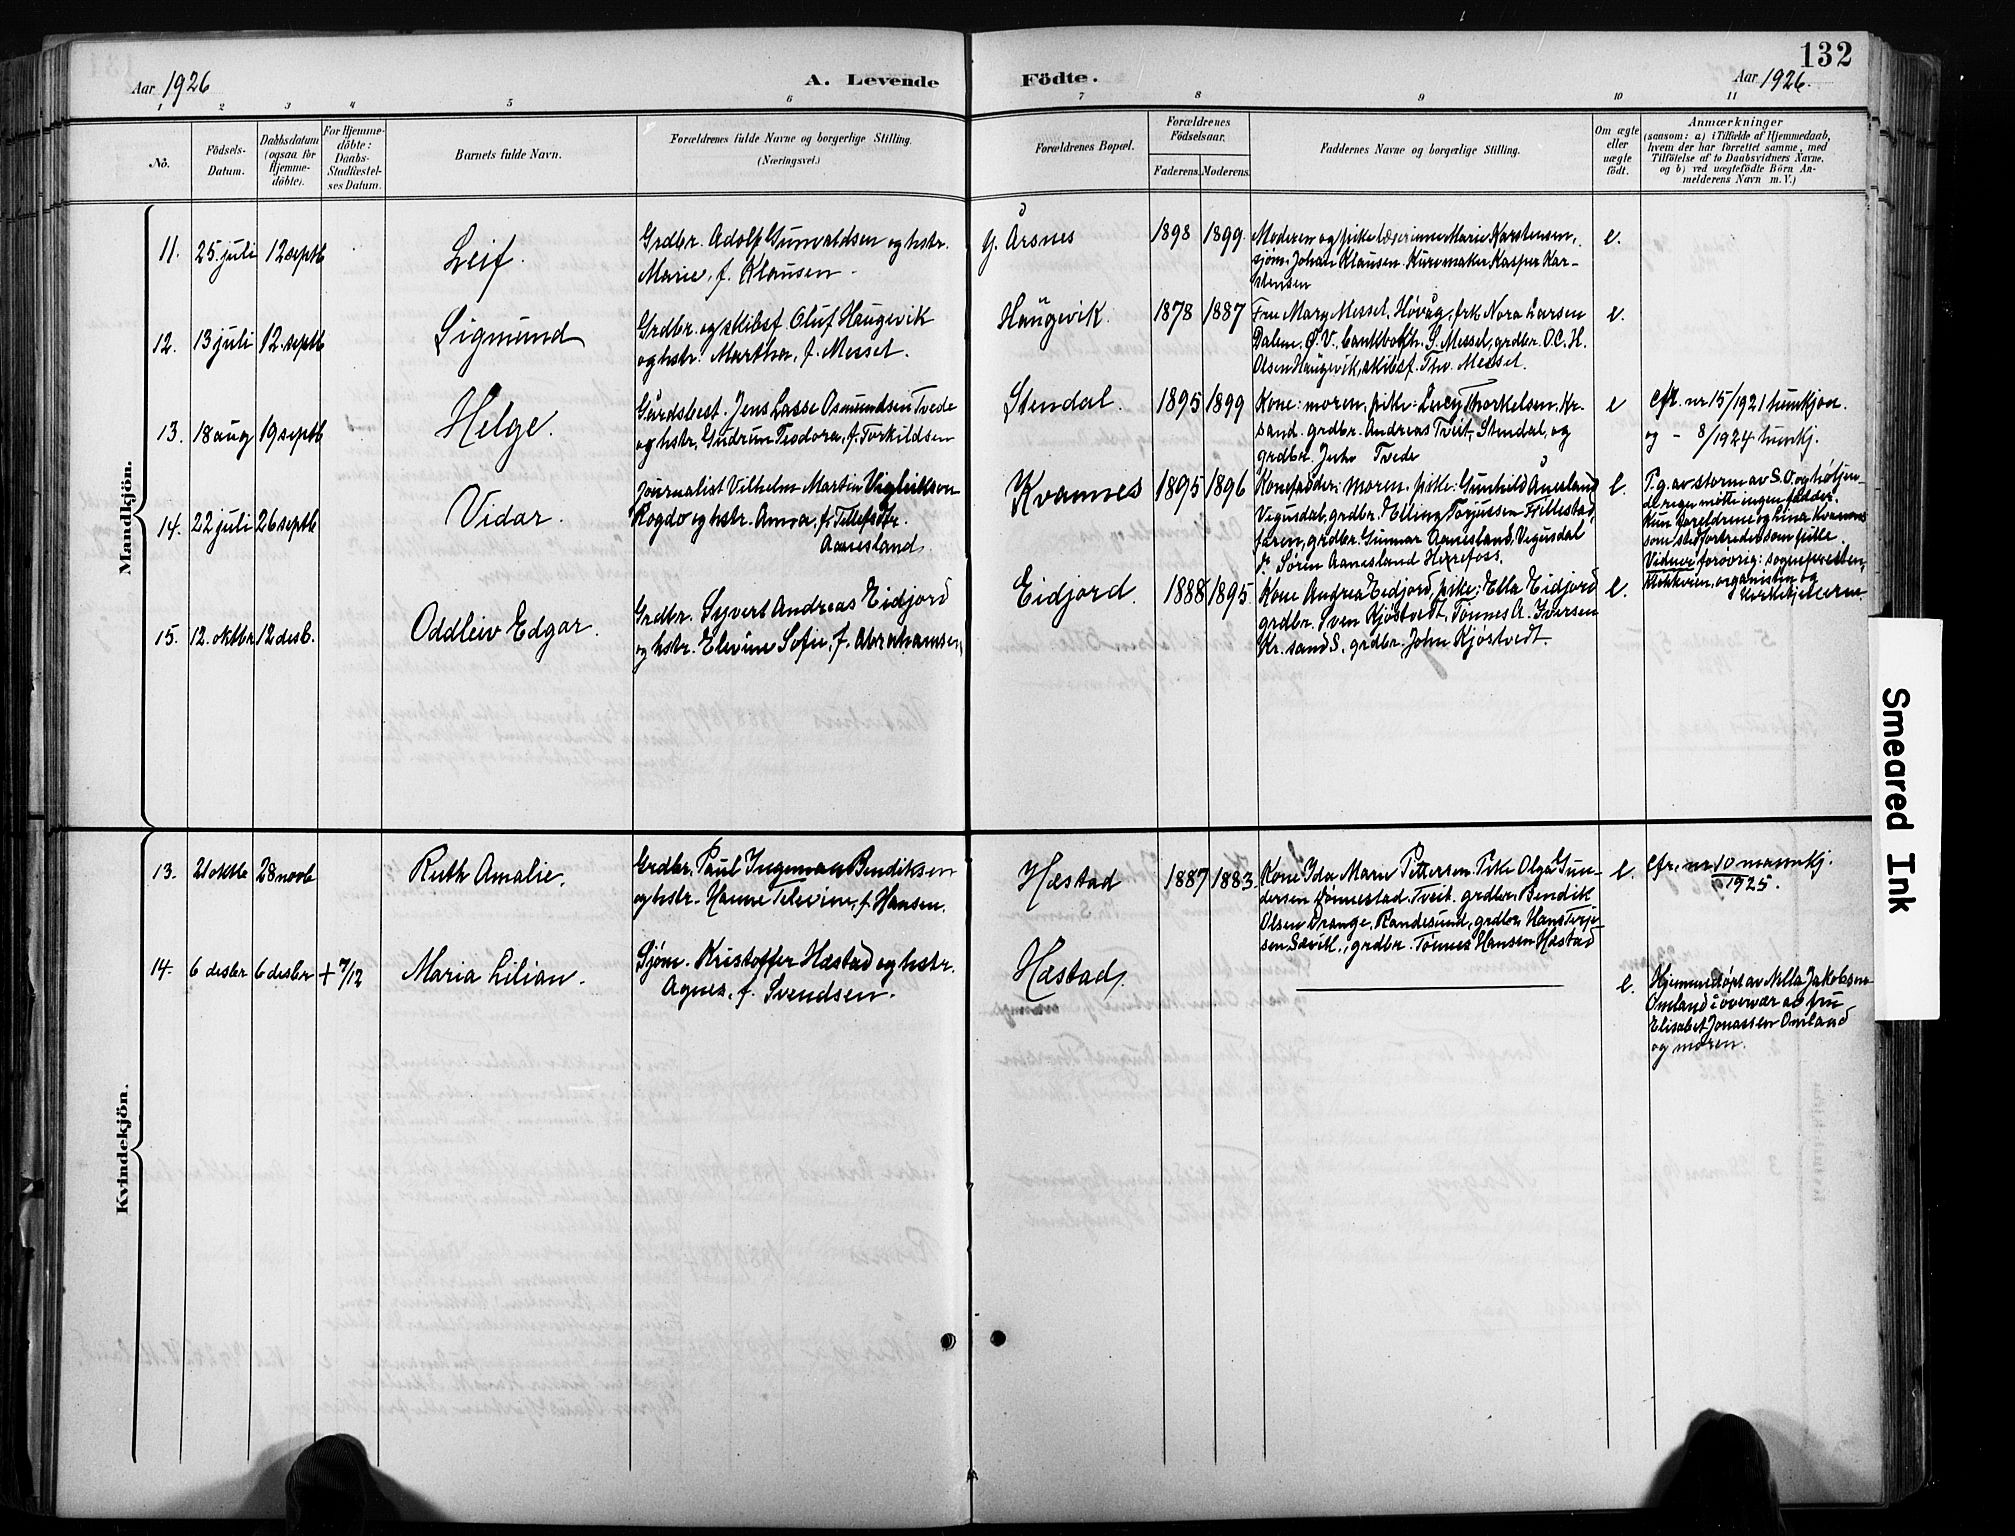 132
Aar 1926
A. Levende Födte.
Aar 1926.
1 2 3 4 5 6 7 8 9 10 11
No.
Födsels-Datum.
Daabsdatum (ogsaa for Hjemme-döbte).
For Hjemme-döbte: Daabs-Stadfæstel-ses Datum.
Barnets fulde Navn.
Forældrenes fulde Navne og borgerlige Stilling.
(Næringsvei.)
Forældrenes Bopæl.
Forældrenes Födselsaar.
Faderens. Moderens.
Faddernes Navne og borgerlige Stilling.
Om ægte eller uægte födt.
Anmærkninger
(saasom: a) i Tilfælde af Hjemmedaab,
hvem der har forrettet samme, med
Tilföielse af to Daabsvidners Navne.
og b) ved uægtefödte Börn An-
melderens Navn m. V.)
Mandkjön.
11. 25 juli 12 septb Leif.
Grdbr. Adolf Gunvaldsen og hstr.
Marie, f. Klausen.
g. Årsnes 1898 1899.
Moderen og pike lærerinne Marie Karstensen,
sjöm. Johan Klausen. Kurvmaker Kasper Kar-
stensen
e.
12. 13 juli 12. septb Sigmund
Grdbr. og skibsf. Oluf Haugevik
og hstr. Martha, f. Messel.
Haugevik. 1878 1887
Fru Mary Messel, Høvåg, frk Nora Larsen
Dalene, Ø. V. bankbokh. S. Messel, grdbr. O. C. H.
Olsen Haugevik, skibsf. Thv. Messel.
e.
13. 18 aug 19 septb Helge.
Gårdsbest. Jens Lasse Osmundsen Tvede
og hstr. Gudrun Teodora, f. Torkildsen
Stendal. 1895 1899
Kone: moren, pike: Lucy Thorkelsen, Kr-
sand. grdbr. Andreas Tveit, Stendal, og
grdbr. Tvede
e
cfr. nr 15/1921 hunkjøn.
og - 8/1924 hunkj.
14. 22 juli 26 septb Vidar.
Journalist Vilhelm Martin Vigleiksen
Rogdo og hstr. Anna, f. Tellefsdtr.
Aanesland.
Kvannes 1895 1896
Konefadder: moren. pike: Gunhild Ånesland
Vegusdal, grdbr. Elling Torjussen Fillestad,
grdbr. Gunnar Aanesland, Vegusdal
Søren Aanesland Herefoss.
e.
P.g. av storm av S.O. og høljen-
de regn møtte ingen faddere.
Kun foreldrene og Lina Kvannes
som stedfortreder som pike.
Vidner forøvrig: sognepresten,
klokkeren, organisten og
kirketjeneren.
15. 12. oktbr 12 desb. Oddleiv Edgar.
Grdbr. Syvert Andreas Eidjord
og hstr. Elevine Sofie, f. Abrahamsen,
Eidjord. 1888 1895
Kone Andrea Eidjord, pike: Ella Eidjord
grdbr. Sven Kjøstvedt, Tønnes A. Iversen
Kr. sand S. grdbr. John Kjøstvedt.
e.
Kvindekjön.
13. 21 oktb 28 novb Ruth Amalie.
Grdbr. Paul Ingeman Bendiksen
og hstr. Hanne Televine, f. Hansen.
Hæstad 1887 1883.
Kone Ida Marie Pettersen. Pike Olga Gun-
dersen Rønnestad, Tveit. grdbr. Bendik
Olsen Drange, Randesund, grdbr. Hans Terje-
sen Sævik., grdbr. Tønnes Hansen Hæstad
e.
cfr. nr 10 mannkj.
1925.
14. 6 desbr 6 desbr + 7/12 Maria Lilian.
Sjøm. Kristoffer Hæstad og hstr.
Agnes, f. Svendsen.
Hæstad.
e.
Hjemmedøpt av Nella Jakobsen
Omland i overvær av fru
Elisabet Jonassen Omland
og moren.
Smeared Ink